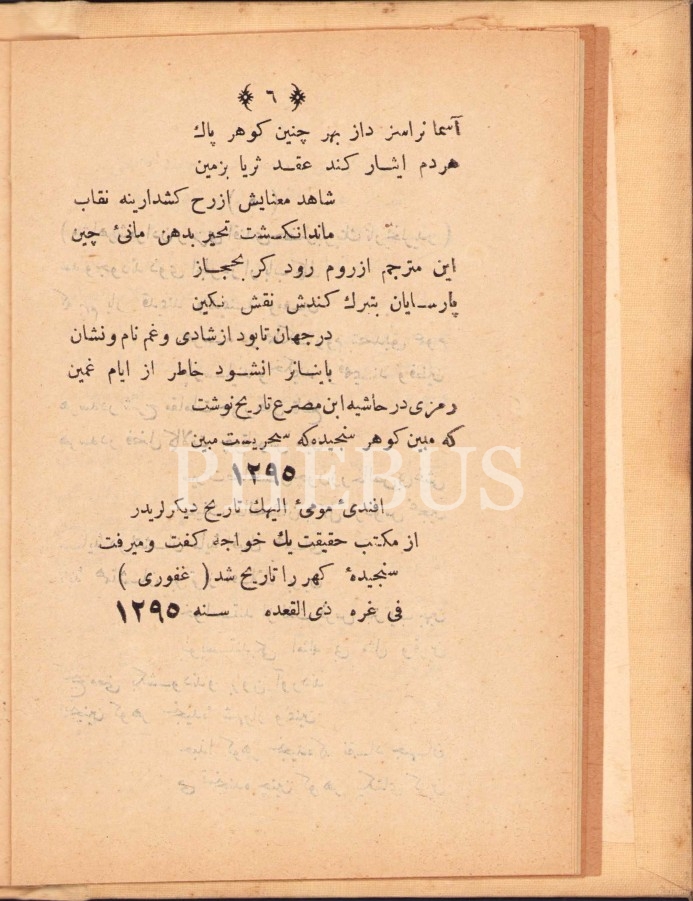 ٦
آسمانراسزداز بهر چنین کوهر پاك
هردم ایثار کند عقد ثریا بزمین
شاهد معنایش ازرخ کشدارینه نقاب
ماندانکشت تحیر بدهن مانئ چین
این مترجم ازروم رود کر بحجاز
پارسایان بتبرك کندش نقش نکین
درجهان تابود ازشادی وغم نام ونشان
بایسانر انشود خاطر از ایام غمین
رمزی درحاشیه این مصرع تاریخ نوشت
که مبین کوهر سنجیده که سحریست مبین
١٢٩٥
افندئ مومئ الیهك تاریخ دیکرلریدر
از مکتب حقیقت یك خواجه کفت ومیرفت
سنجیدۀ کهر را تاریخ شد ( غفوری )
فی غره ذی القعده سنه ١٢٩٥
PHEBUS